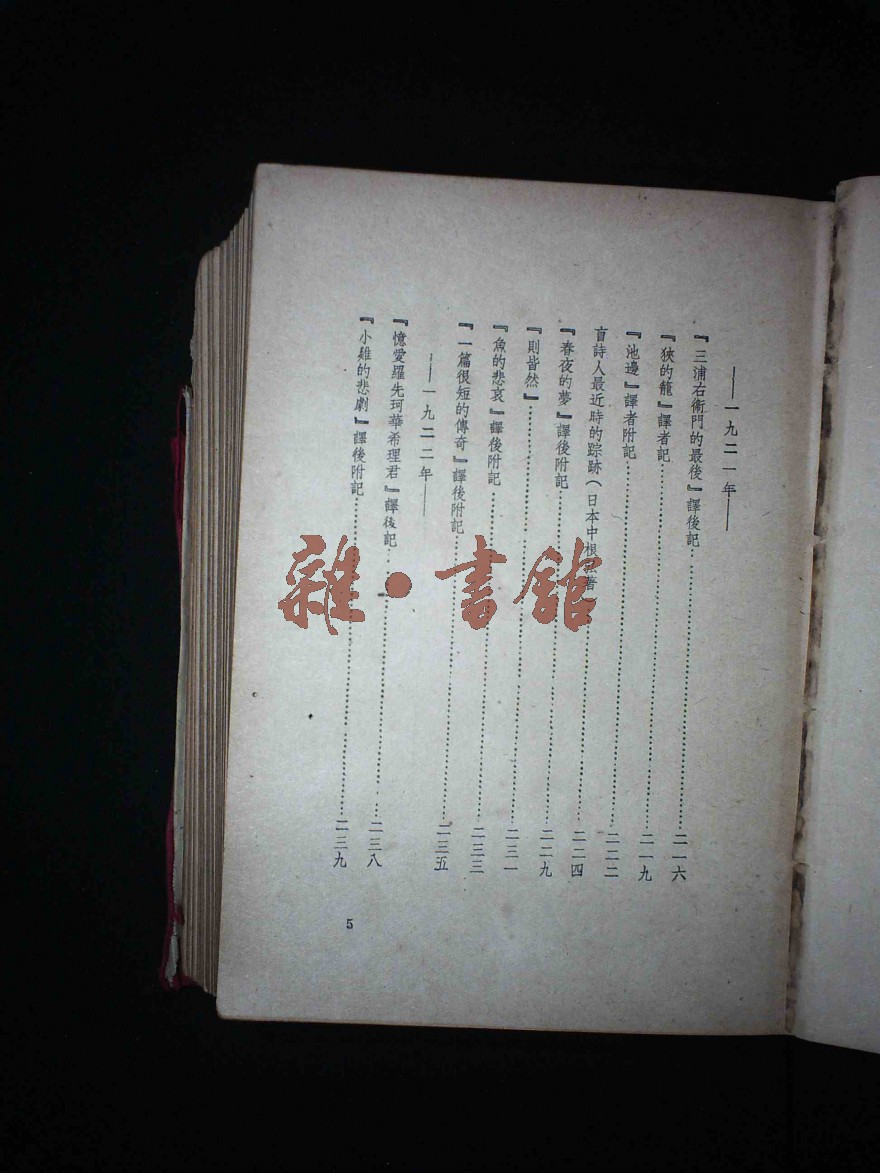 ——一九二一年——
『三浦右衞門的最後』譯後記……二一六
『狹的籠』譯者記……二一九
『池邊』譯者附記……二二二
盲詩人最近時的踪跡（日本中根著……二二四
『春夜的夢』譯後附記……二二九
『則皆然』……二三一
『魚的悲哀』譯後附記……二三三
『一篇很短的傳奇』譯後附記……二三五
——一九二二年——
『憶愛羅先珂華希理君』譯後記……二三八
『小雞的悲劇』譯後附記……二三九
5
雜·書館